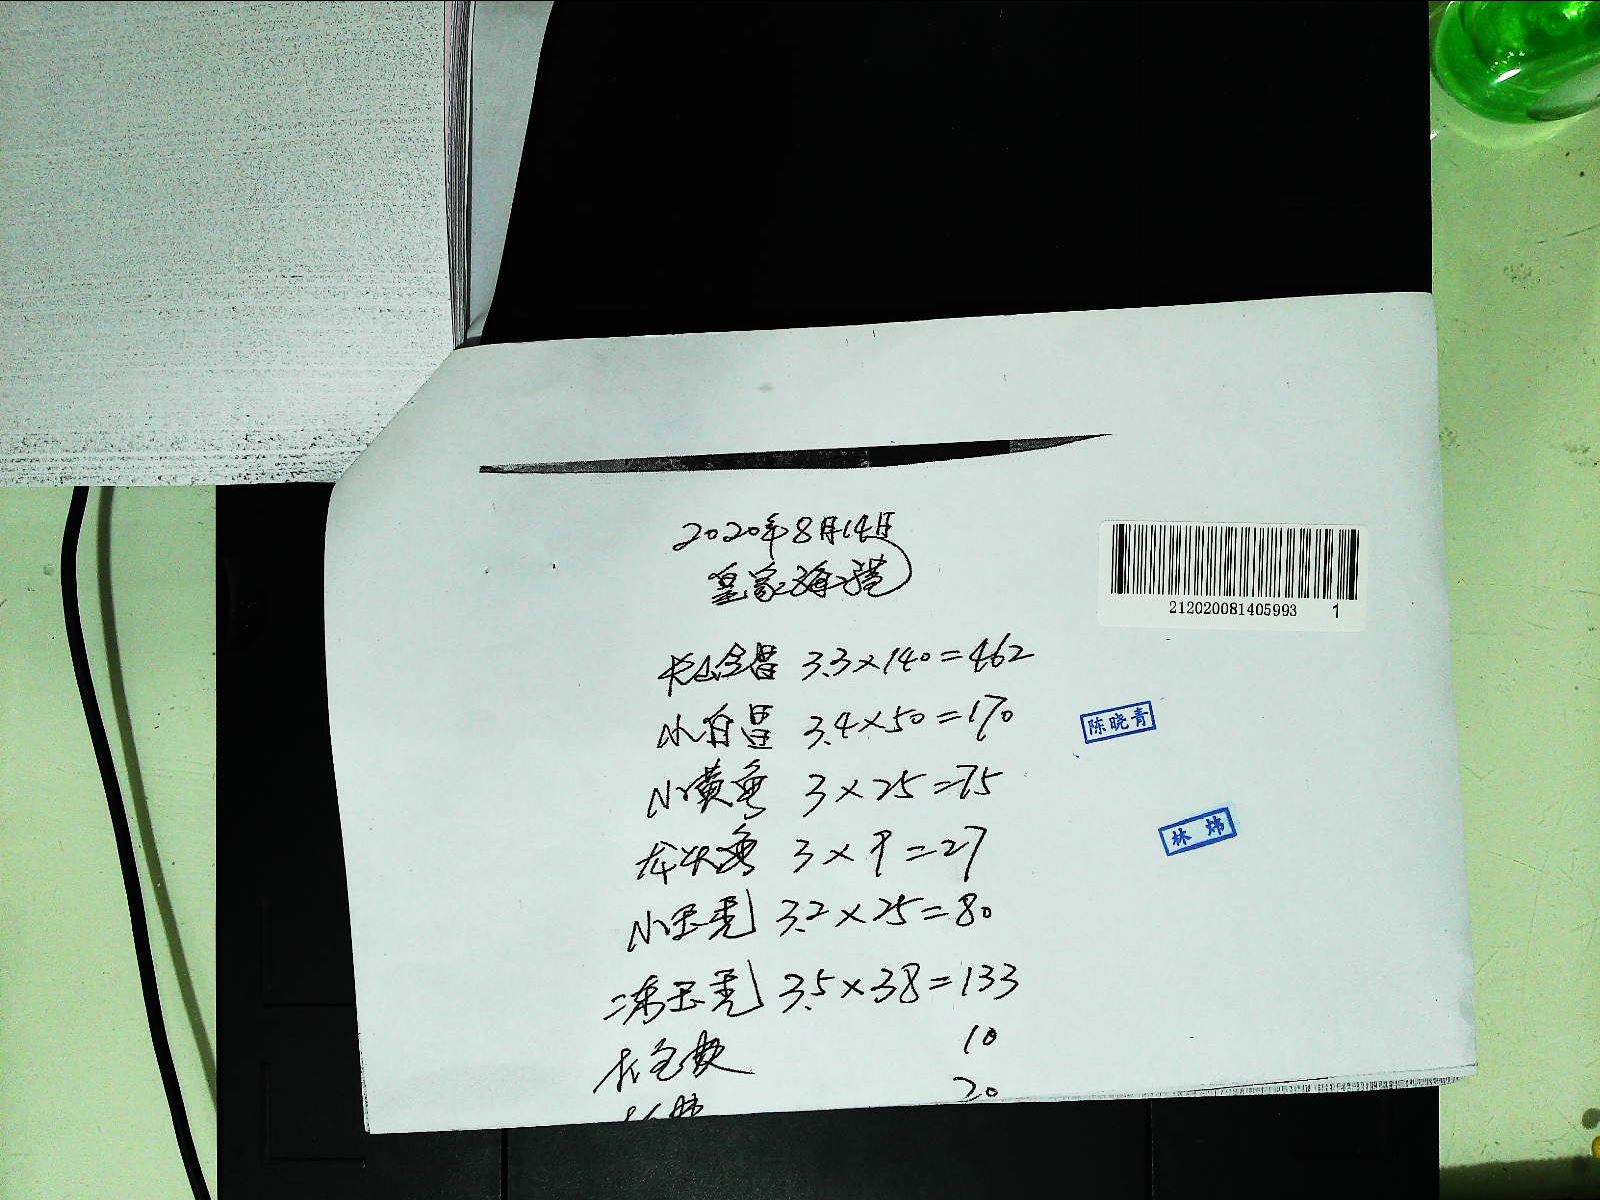 2020年8月14日
皇家海港
212020081405993 1
长山全昌 3.3×140=462
小白昌 3.4×50=170
陈晓青
小黄鱼 3×25=75
林炜
龙头鱼 3×9=27
小玉秃 3.2×25=80
二冻玉秃 3.5×38=133
10
20